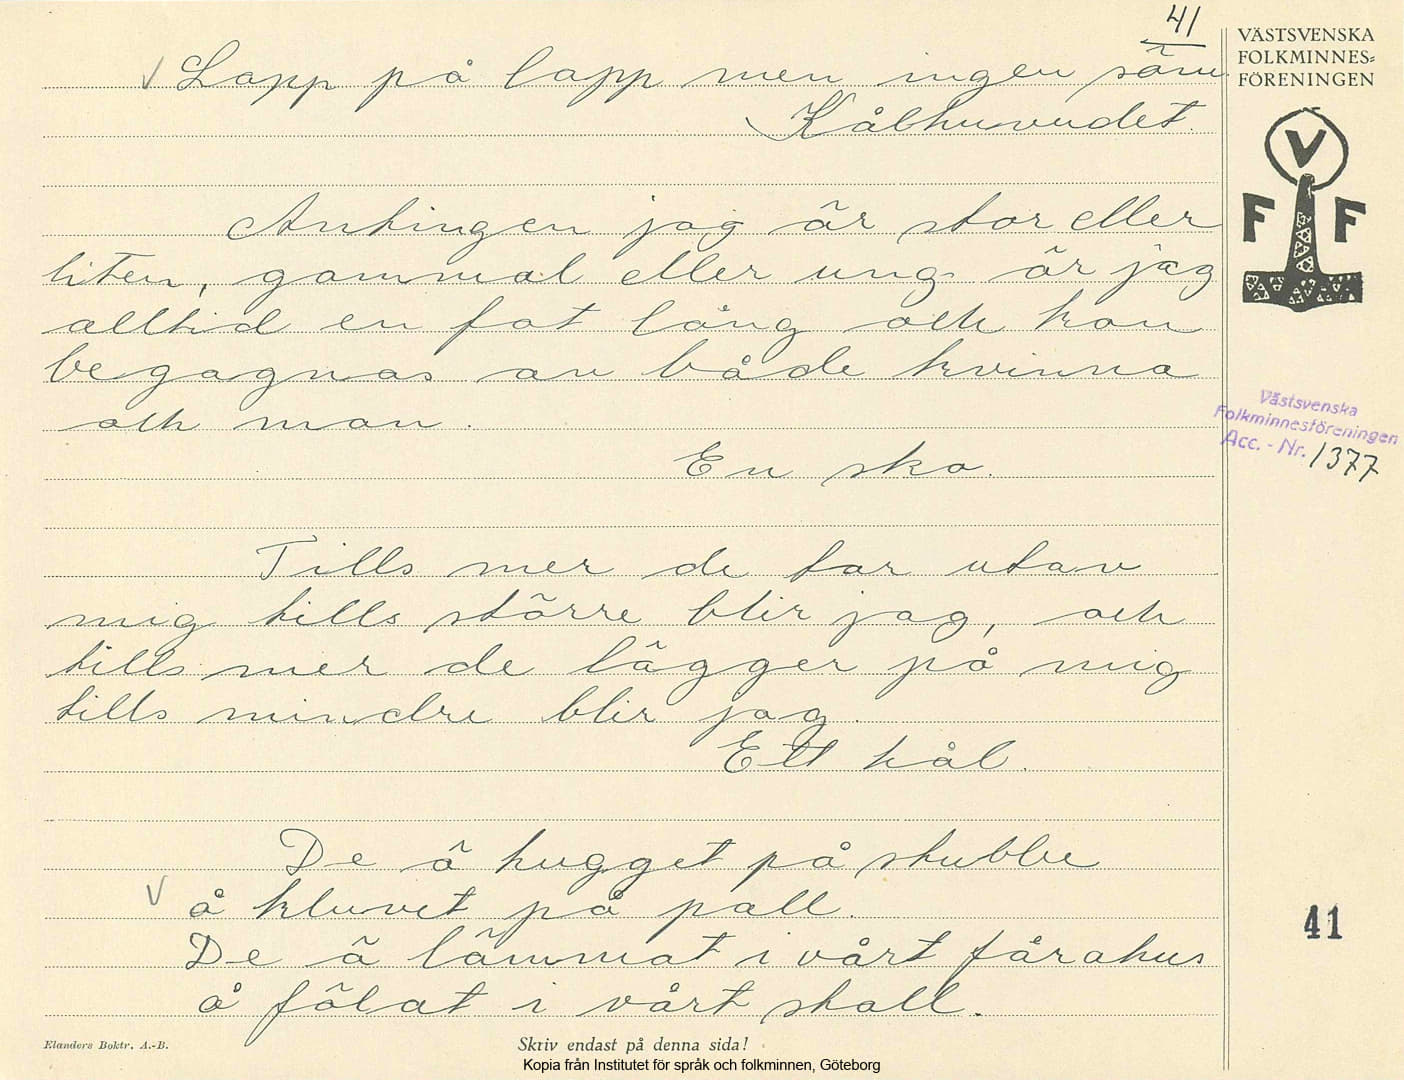 41
VÄSTSVENSKA
FOLKMINNES=
FÖRENINGEN
V
F F
Lapp på lapp men ingen söm
Kålhuvudet.
Antingen jag är stor eller
liten, gammal eller ung är jag
alltid en fot lång och kan
begagnas av både kvinna
och man.
En sko.
Tills mer de tar utav
mig tills större blir jag, och
tills mer de lägger på mig
tills mindre blir jag.
Ett hål.
De ä hugget på stubbe
å kluvet på pall.
De ä lämmat i vårt fårahus
å fölat i vårt stall.
Västsvenska
Folkminnesföreningen
Acc. - Nr. 1377
41
Elanders Boktr. A.-B.
Skriv endast på denna sida!
Kopia från Institutet för språk och folkminnen, Göteborg